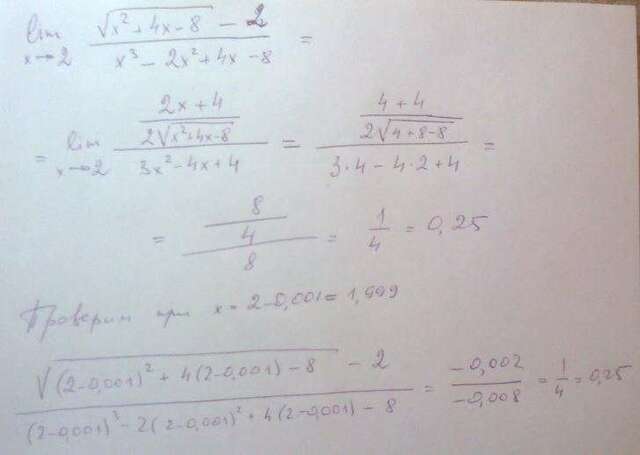 lim x→2 (√(x² + 4x - 8) - 2) / (x³ - 2x² + 4x - 8) =
= lim x→2 ((2x + 4) / (2√(x² + 4x - 8))) / (3x² - 4x + 4) = ((4 + 4) / (2√(4 + 8 - 8))) / (3·4 - 4·2 + 4) =
= (8 / 4) / 8 = 1/4 = 0,25
Проверим при x = 2-0,001 = 1,999
(√((2-0,001)² + 4(2-0,001) - 8) - 2) / ((2-0,001)³ - 2(2-0,001)² + 4(2-0,001) - 8) = -0,002 / -0,008 = 1/4 = 0,25